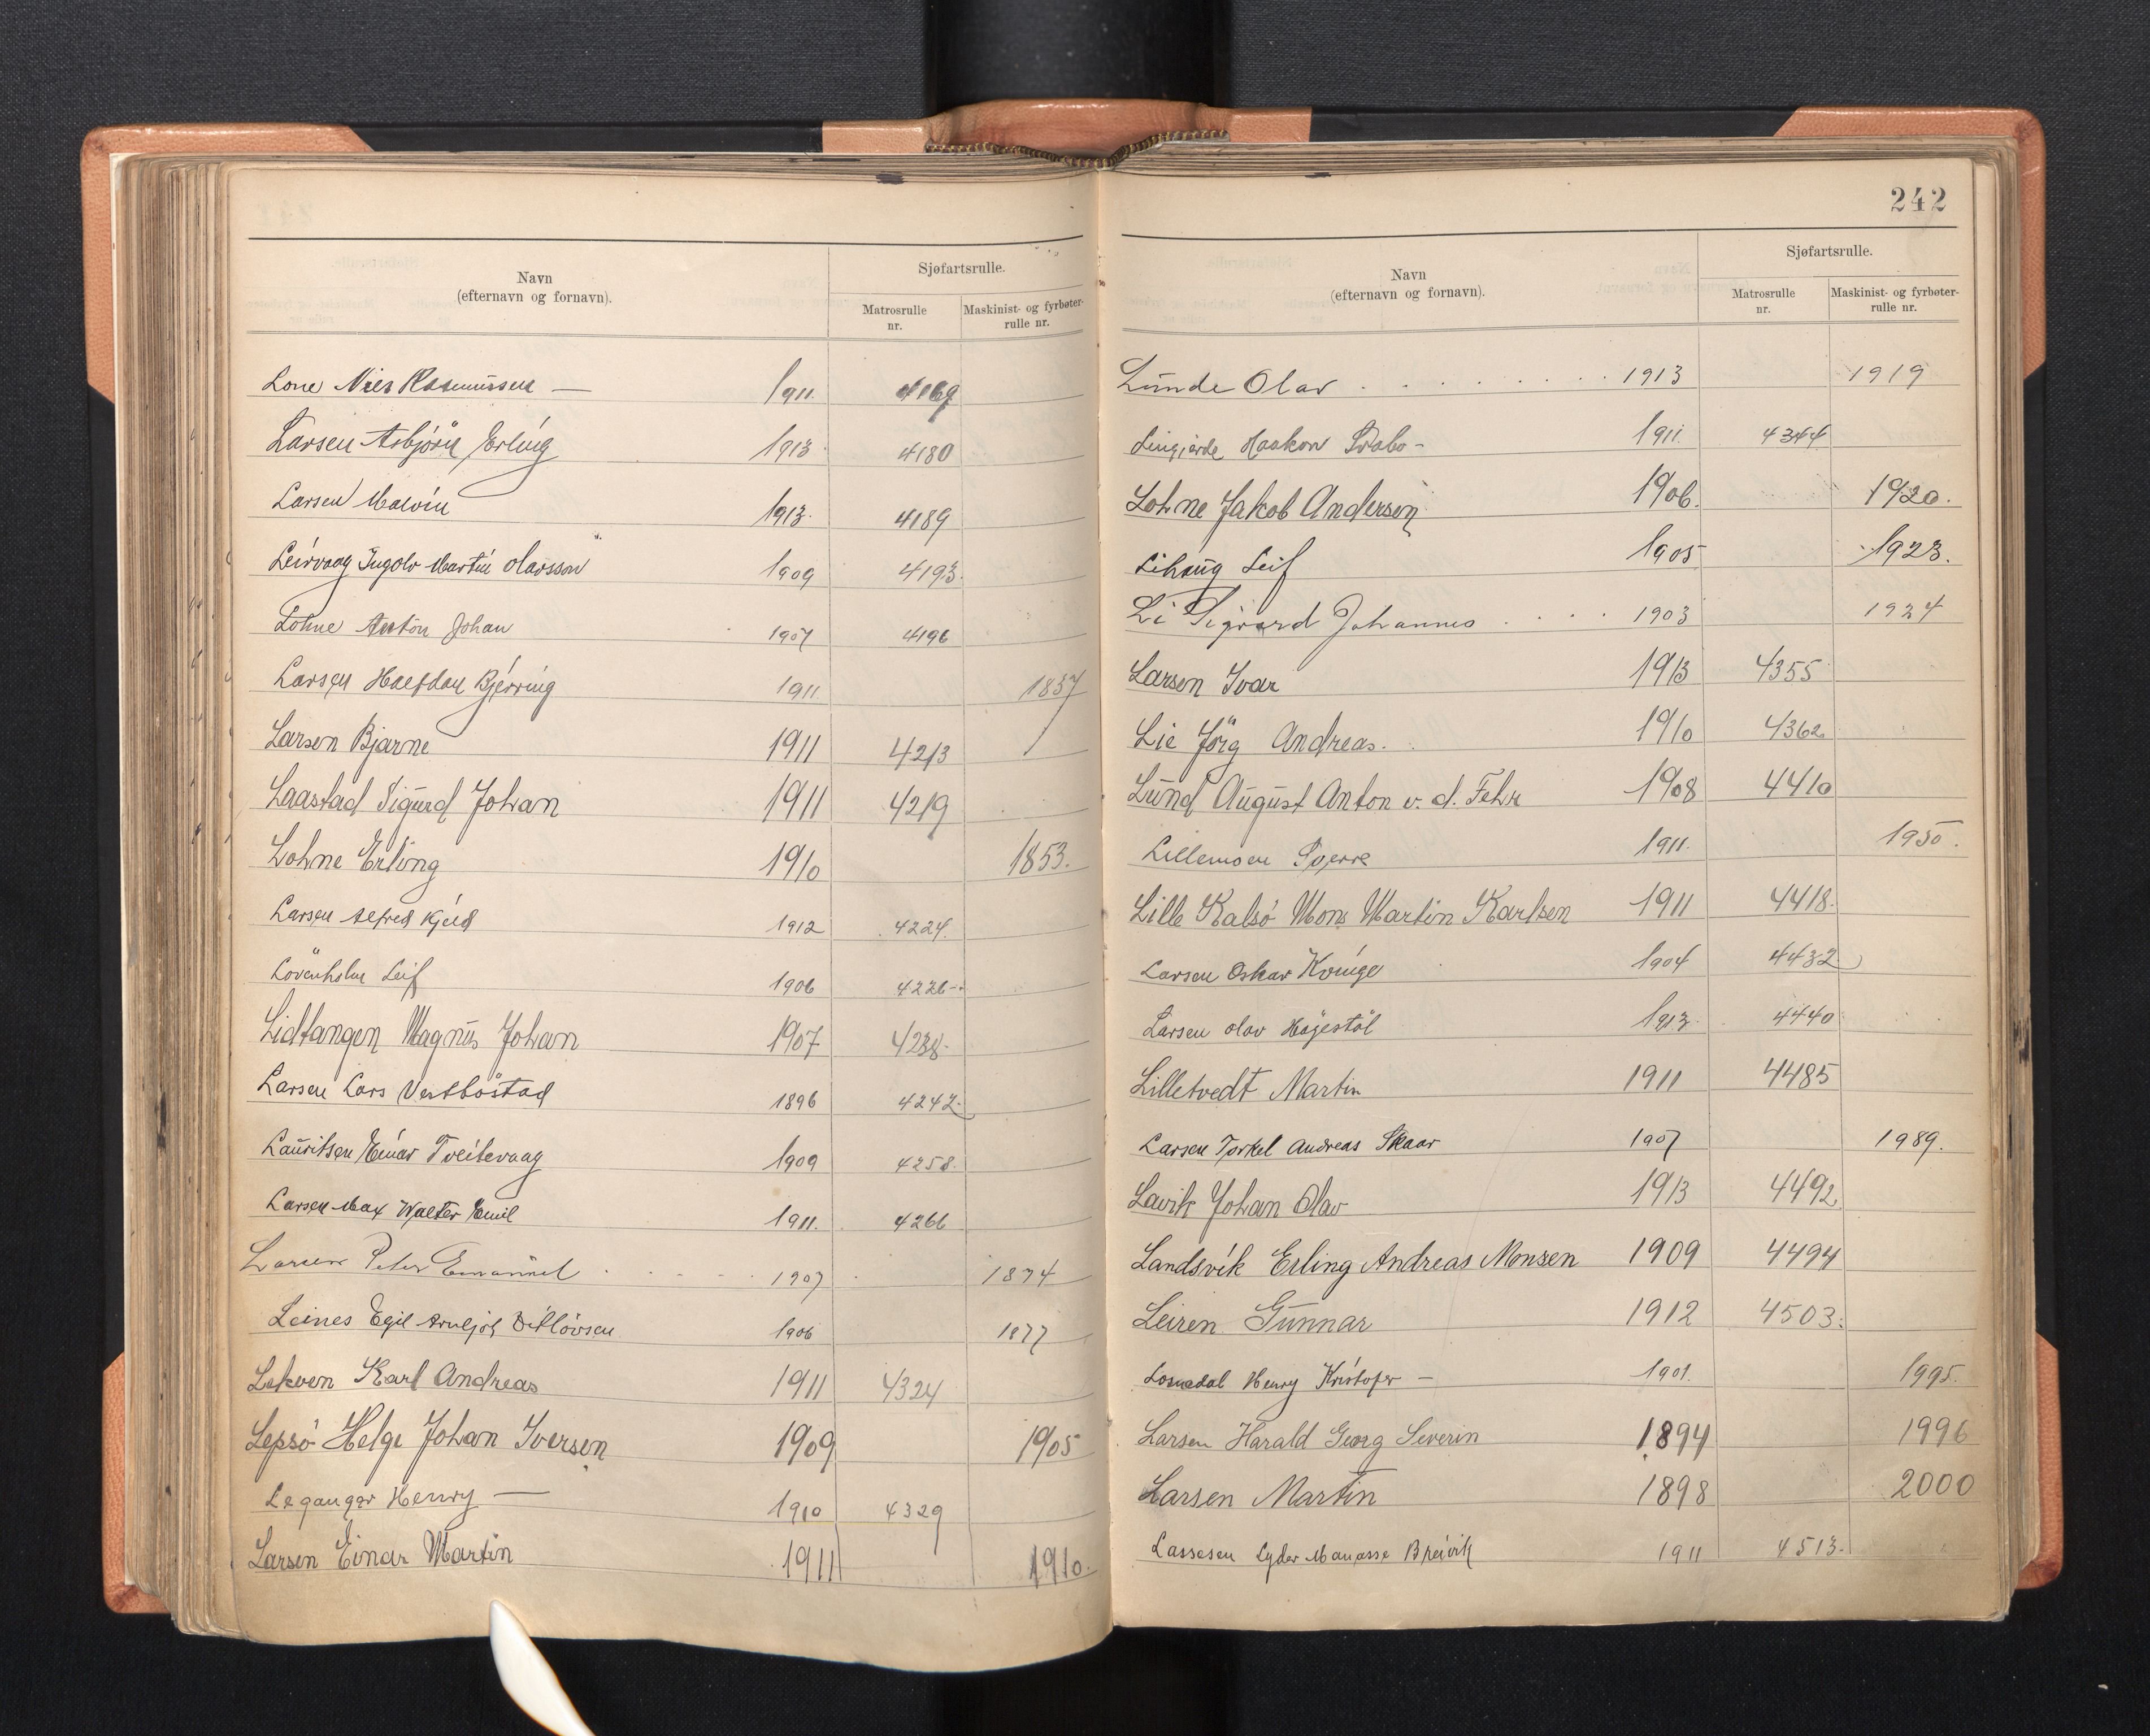 Navn
(efternavn og fornavn).
Sjøfartsrulle.
Matrosrulle
nr.
Maskinist- og fyrbøter-
rulle nr.
Lone Nies Rasmussen — 1911. 4169
Larsen Asbjørn Erling 1913. 4180
Larsen Malvin 1913. 4189
Leirvaag Ingolv Martin Olavsson 1909 4193.
Lohne Anton Johan 1907 4196
Larsen Halfdan Bjerring 1911. 1837
Larsen Bjarne 1911 4213
Laastad Sigurd Johan 1911 4219
Lohne Erling 1910 1853.
Larsen Alfred Kjeld 1912 4224.
Lövenholm Leif 1906 4226-.
Lidtangen Magnus Johan 1907 4238.
Larsen Lars Vestböstad 1896 4242.
Lauritsen Einar Tveitevaag 1909 4258.
Larsen Max Walter Emil 1911. 4266
Larsen Peter Emanuel 1907 1874
Leines Egil Arneljot Ditlövsen 1906 1877
Lekven Karl Andreas 1911 4324
Lepsö Helge Johan Iversen 1909 1905
Leganger Henry — 1910 4329
Larsen Einar Martin 1911 1910.
242
Navn
(efternavn og fornavn).
Sjøfartsrulle.
Matrosrulle
nr.
Maskinist- og fyrbøter-
rulle nr.
Lunde Olav 1913 1919
Lingjerde Haakon - 1911. 4344
Lohne Jakob Andersen 1906. 1920.
Lihaug Leif 1905 1923.
Li Sigvard Johannes 1903 1924
Larsen Ivar 1913 4355
Lie Jörg Andreas. 1910 4362
Lund August Anton v. d. Fehr 1908 4410
Lillemoen Sverre 1911. 1950.
Lille Kalsö Mons Martin Karlsen 1911 4418.
Larsen Oskar Kvinge 1904 4432
Larsen Olav Höjestöl 1913. 4440
Lilletvedt Martin 1911 4485
Larsen Torkel Andreas Skaar 1907 1989.
Lavik Johan Olav 1913 4492
Landsvik Erling Andreas Monsen 1909 4494
Leiren Gunnar 1912 4503.
Losnedal Henry Kristofer — 1901. 1995.
Larsen Harald Georg Severin 1894 1996
Larsen Martin 1898 2000
Lassesen Lyder Manasse Breivik 1911 4513.